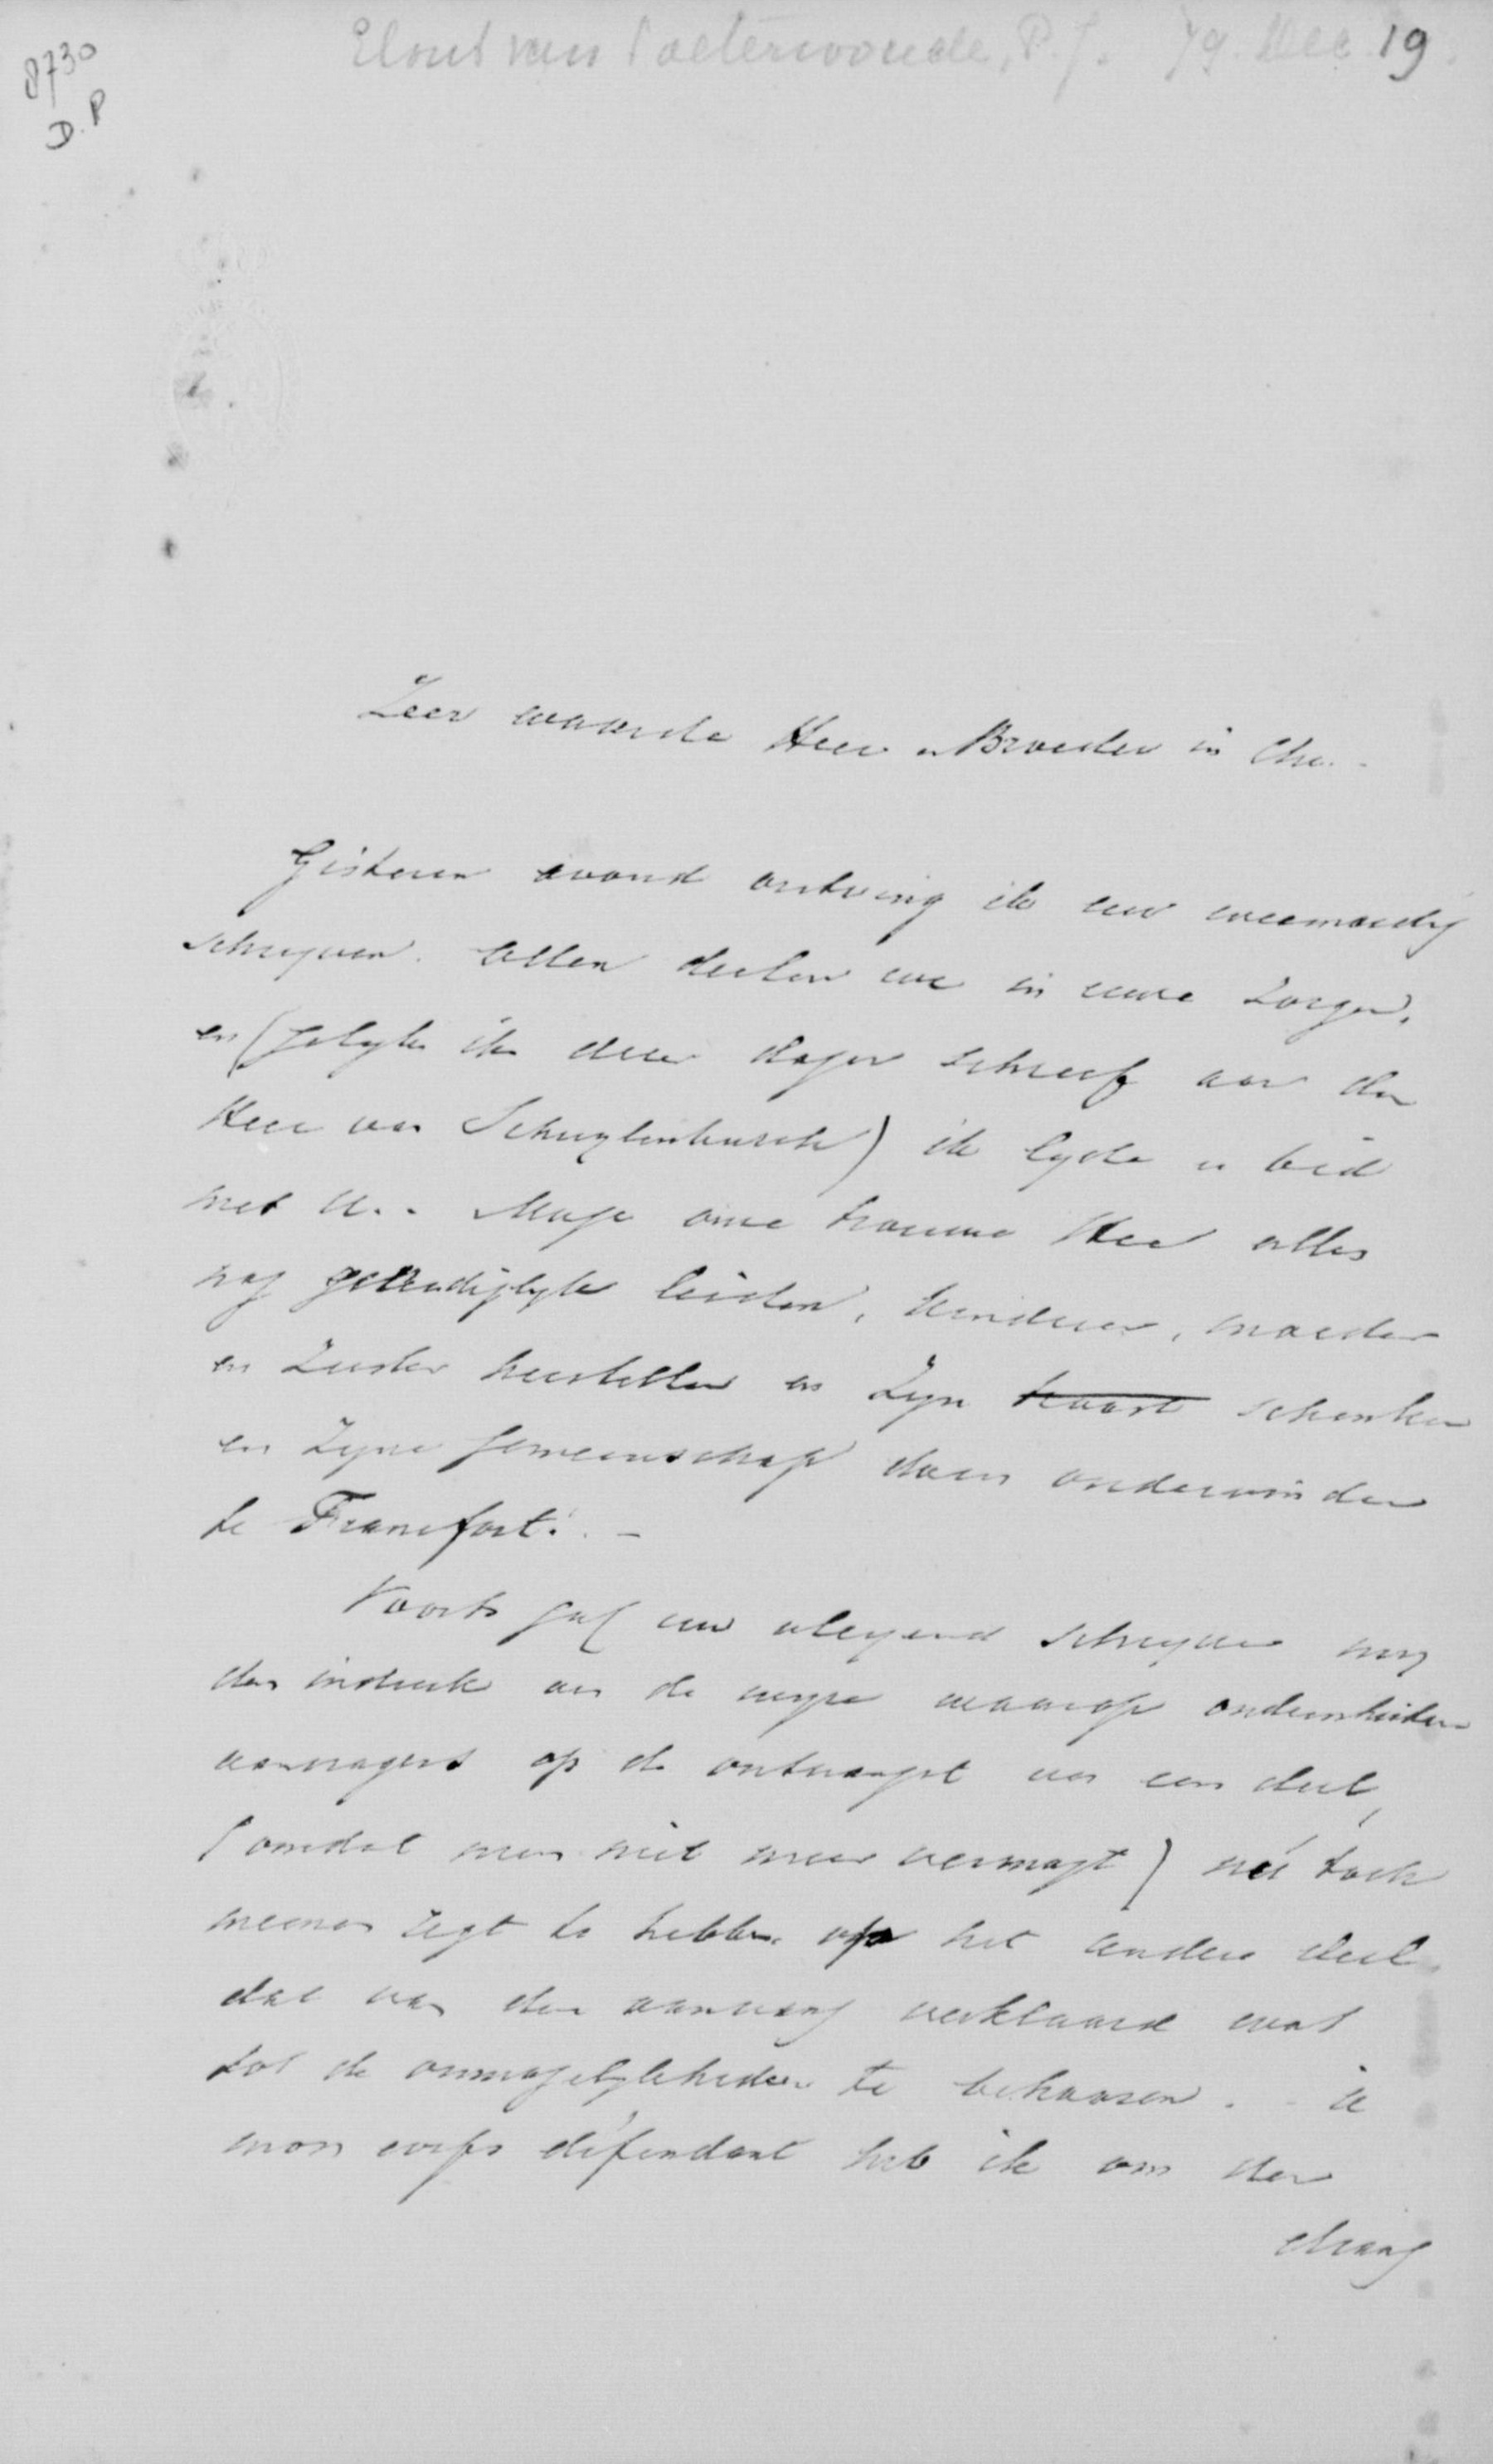 Elout van Soeterwoude, P.J. 79. Dec 19.
8730
D.P
Zeer waarde Heer en Broeder in Chr.
Gisteren avond ontving ik uw weemoedig
schryven. Allen deelen we in uwe zorgen,
en (gelyk ik dezer dagen schreef aan den
Heer van Schuylenburch) ik lyde en bid
met U. Moge onze trouwe Heer alles
nog genadiglyk leiden, kinderen, moeder
en Zuster herstellen en Zyn troost schenken
en Zyne gemeenschap doen ondervinden
te Francfort. -
Voorts gaf uw schryven my
den indruk van de wyze waarop onderscheiden
aanvragers op de ontvangst van een deel,
(omdat men niet meer vermogt) nú toch
meenen regt te hebben op het andere deel
dat van den aanvang verklaard was
tot de onmogelykheden te behooren. - à
mon corps défendant heb ik om den
drang